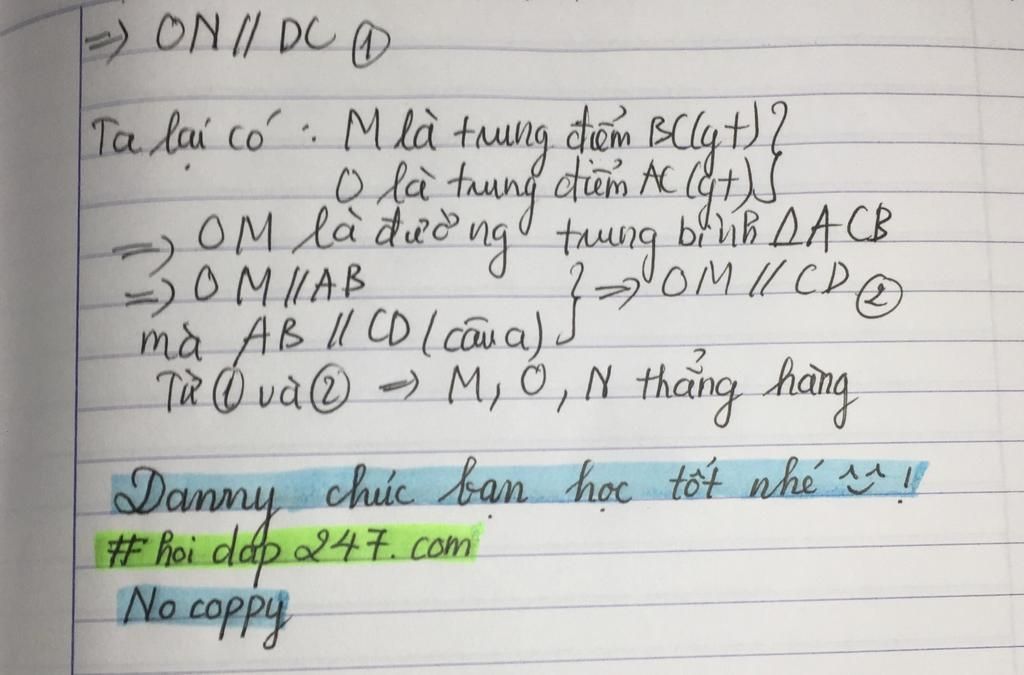 => ON // DC ①
Ta lại có : M là trung điểm BC (gt) }
O là trung điểm AC (gt) }
=> OM là đường trung bình ΔACB
=> OM // AB } => OM // CD ②
mà AB // CD (câu a) }
Từ ① và ② => M, O, N thẳng hàng
Danny chúc bạn học tốt nhé ^^ !
# hoi dap 247. com
No coppy